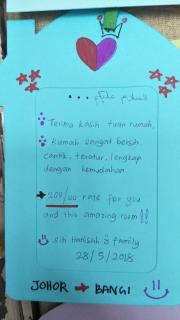 السلام عليكم ...
Terima kasih tuan rumah,
Rumah sangat bersih
cantik, teratur, lengkap
dengan kemudahan
200/100 rate for you
and this amazing room!!
Siti Hanisah & family
28/5/2018
JOHOR → BANGI